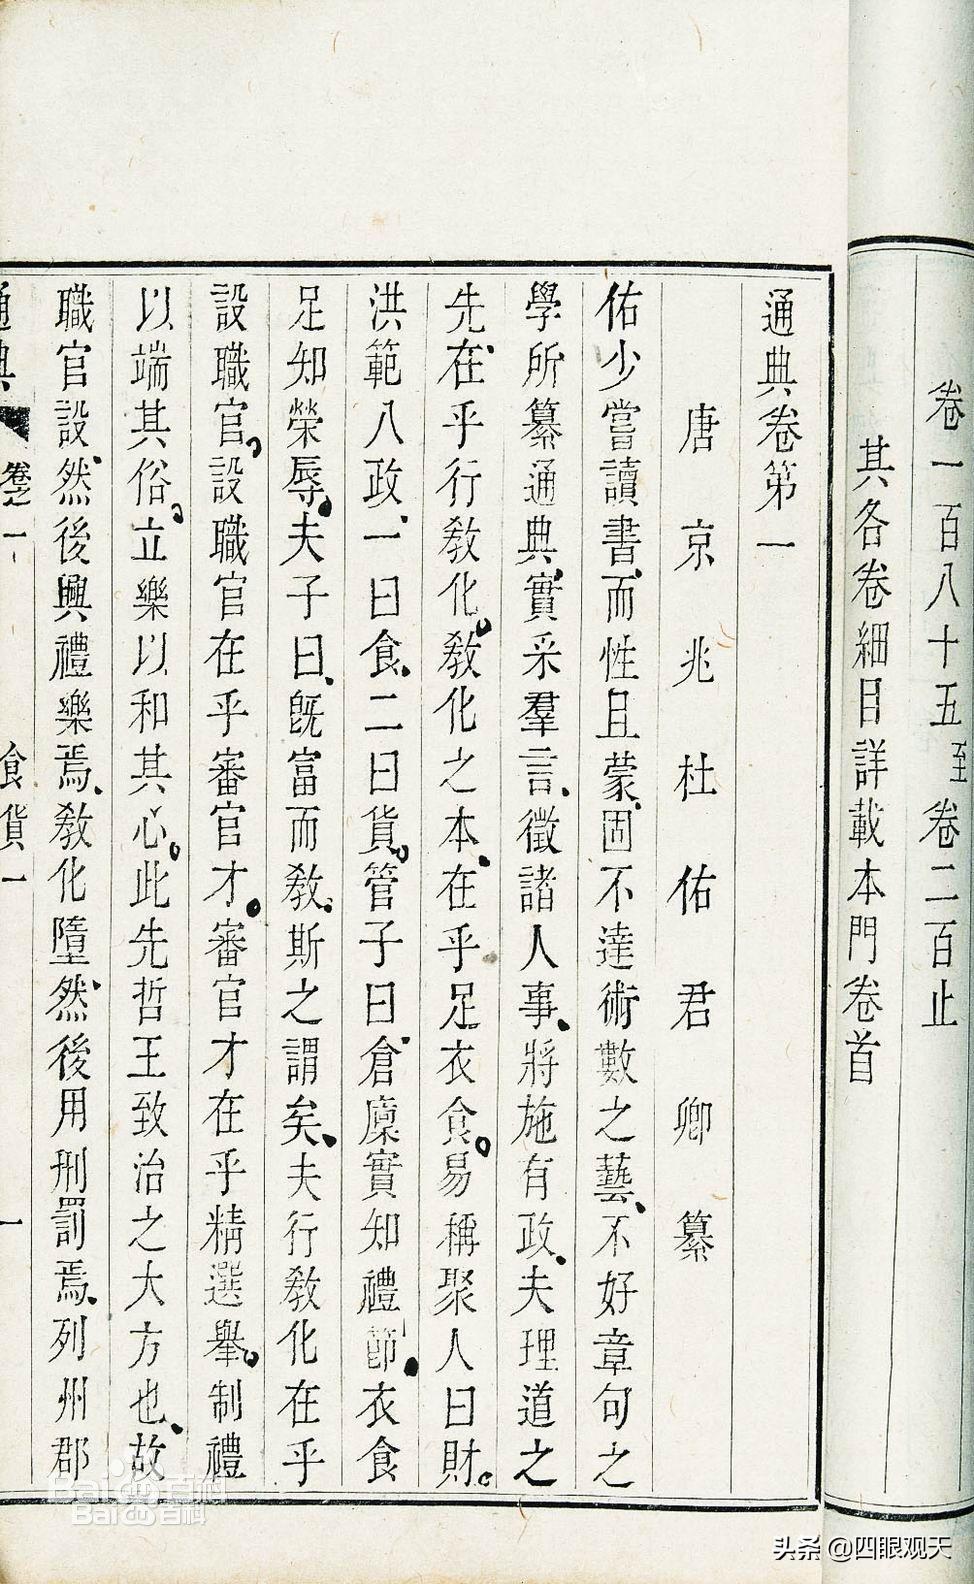 卷一百八十五至卷二百止
其各卷細目詳載本門卷首
通典卷第一
唐京兆杜佑君卿纂
佑少嘗讀書而性且蒙固不達術數之藝不好章句之
學所纂通典實采羣言徵諸人事將施有政夫理道之
先在乎行教化教化之本在乎足衣食易稱聚人曰財
洪範八政一曰食二曰貨管子曰倉廩實知禮節衣食
足知榮辱夫子曰既富而教斯之謂矣夫行教化在乎
設職官設職官在乎審官才審官才在乎精選舉制禮
以端其俗立樂以和其心此先哲王致治之大方也故
職官設然後興禮樂焉教化墮然後用刑罰焉列州郡
通典 卷之一 食貨一 一
Baidu百科
Baidu百科
头条 @四眼观天